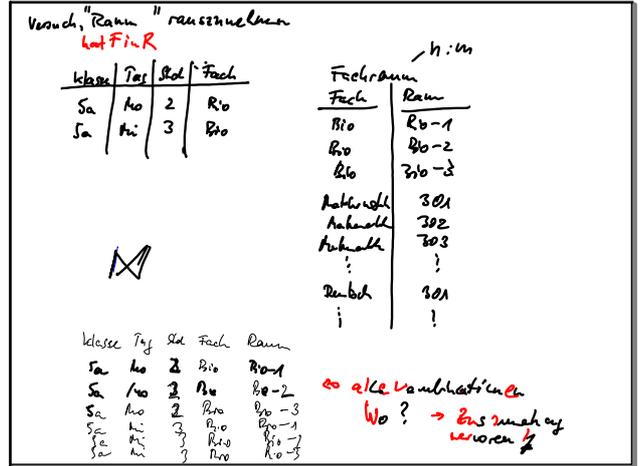 Versuch, "Raum" rauszunehmen
hat F in R
Klasse Tag Std Fach
5a Mo 2 Bio
5a Mi 3 Bio
n:m
Fachraum
Fach Raum
Bio Bio-1
Bio Bio-2
Bio Bio-3
Mathematik 301
Mathematik 302
Mathematik 303
⋮ ⋮
Deutsch 301
⋮ ⋮
⋈
Klasse Tag Std Fach Raum
5a Mo 2 Bio Bio-1
5a Mo 2 Bio Bio-2
5a Mo 2 Bio Bio-3
5a Mi 3 Bio Bio-1
5a Mi 3 Bio Bio-2
5a Mi 3 Bio Bio-3
alle Kombinationen
Wo? → Zusammenhang
verloren